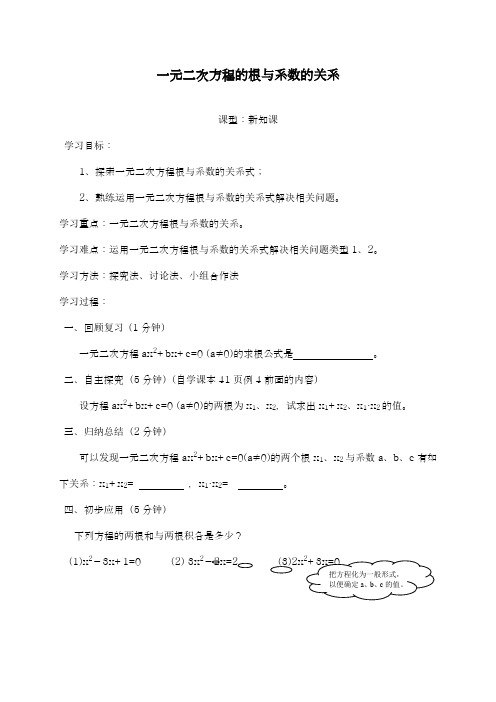 一元二次方程的根与系数的关系
课型：新知课
学习目标：
1、探索一元二次方程根与系数的关系式；
2、熟练运用一元二次方程根与系数的关系式解决相关问题。
学习重点：一元二次方程根与系数的关系。
学习难点：运用一元二次方程根与系数的关系式解决相关问题类型1、2。
学习方法：探究法、讨论法、小组合作法
学习过程：
一、回顾复习（1分钟）
一元二次方程 ax²+ bx+ c=0 (a≠0)的求根公式是________。
二、自主探究（5分钟）（自学课本41页例4前面的内容）
设方程 ax²+ bx+ c=0 (a≠0)的两根为 x₁、x₂, 试求出 x₁+ x₂、x₁·x₂的值。
三、归纳总结（2分钟）
可以发现一元二次方程 ax²+ bx+ c=0(a≠0)的两个根 x₁、x₂与系数 a、b、c 有如
下关系：x₁+ x₂= ________ , x₁·x₂= ________。
四、初步应用（5分钟）
下列方程的两根和与两根积各是多少？
(1)x²－3x+ 1=0 (2) 3x²－2x=2 (3)2x²+ 3x=0
把方程化为一般形式，
以便确定 a、b、c 的值。